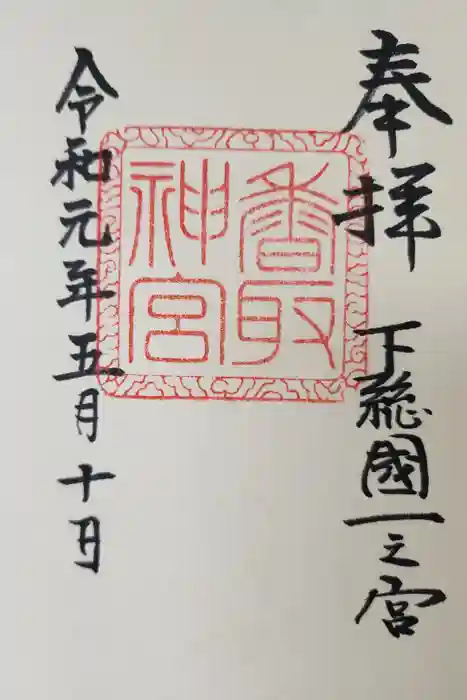 奉拝 下総國一之宮
香取
神宮
令和元年五月十日